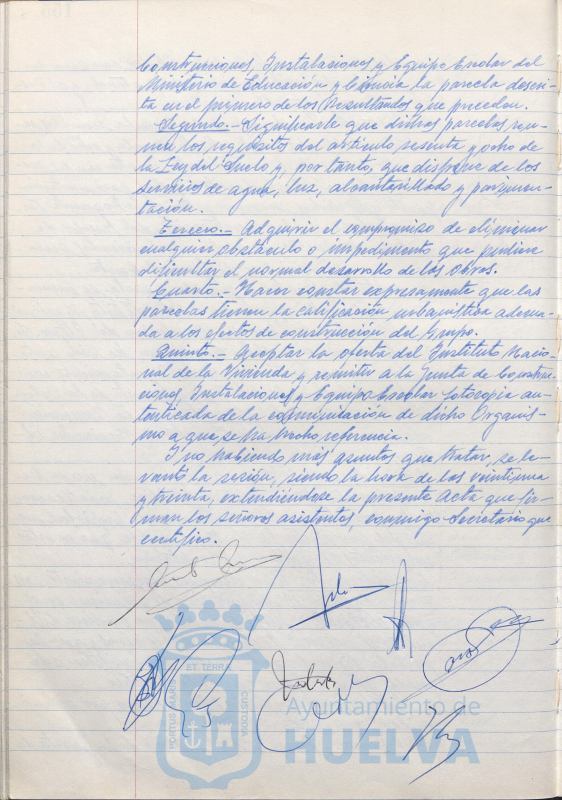 Construcciones, Instalaciones y Equipo Escolar del
Ministerio de Educación y Ciencia la parcela descri-
ta en el primero de los Resultandos que preceden.
Segundo.- Significarle que dichas parcelas reu-
nen los requisitos del artículo sesenta y ocho de
la Ley del Suelo y, por tanto, que dispone de los
servicios de agua, luz, alcantarillado y pavimen-
tación.
Tercero.- Adquirir el compromiso de eliminar
cualquier obstáculo o impedimento que pudiera
dificultar el normal desarrollo de las obras.
Cuarto.- Hacer constar expresamente que las
parcelas tienen la calificación urbanística adecua-
da a los efectos de construcción del Grupo.
Quinto.- Aceptar la oferta del Instituto Nacio-
nal de la Vivienda y remitir a la Junta de Construc-
ciones, Instalaciones y Equipo Escolar fotocopia au-
tenticada de la comunicación de dicho Organis-
mo a que se ha hecho referencia.
Y no habiendo más asuntos que tratar, se le-
vantó la sesión, siendo la hora de las veintiuna
y treinta, extendiéndose la presente Acta que fir-
man los señores asistentes, conmigo Secretario que
certifico.
ET TERRÆ
PORTUS MARIS
CUSTODIA
Ayuntamiento de
HUELVA